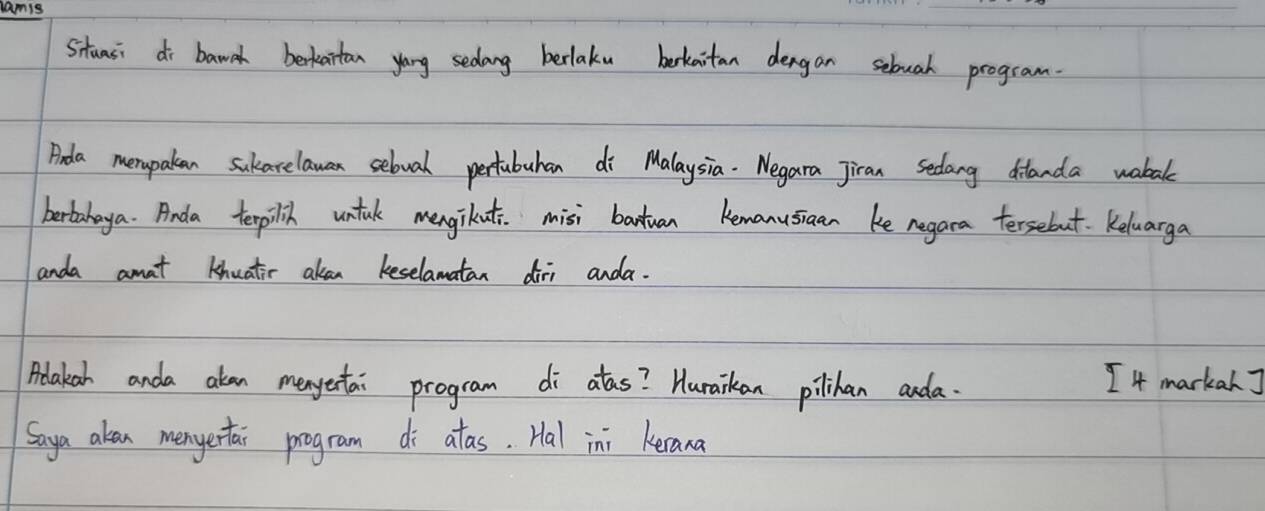 Situasi di bawah berkaitan yang sedang berlaku berkaitan dengan sebuah program.
Anda merupakan sukarelawan sebuah pertubuhan di Malaysia. Negara Jiran sedang dilanda wabak
berbahaya. Anda terpilih untuk mengikuti misi bantuan kemanusiaan ke negara tersebut. Keluarga
anda amat khuatir akan keselamatan diri anda.
Adakah anda akan menyertai program di atas? Huraikan pilihan anda. [4 markah]
Saya akan menyertai program di atas. Hal ini kerana